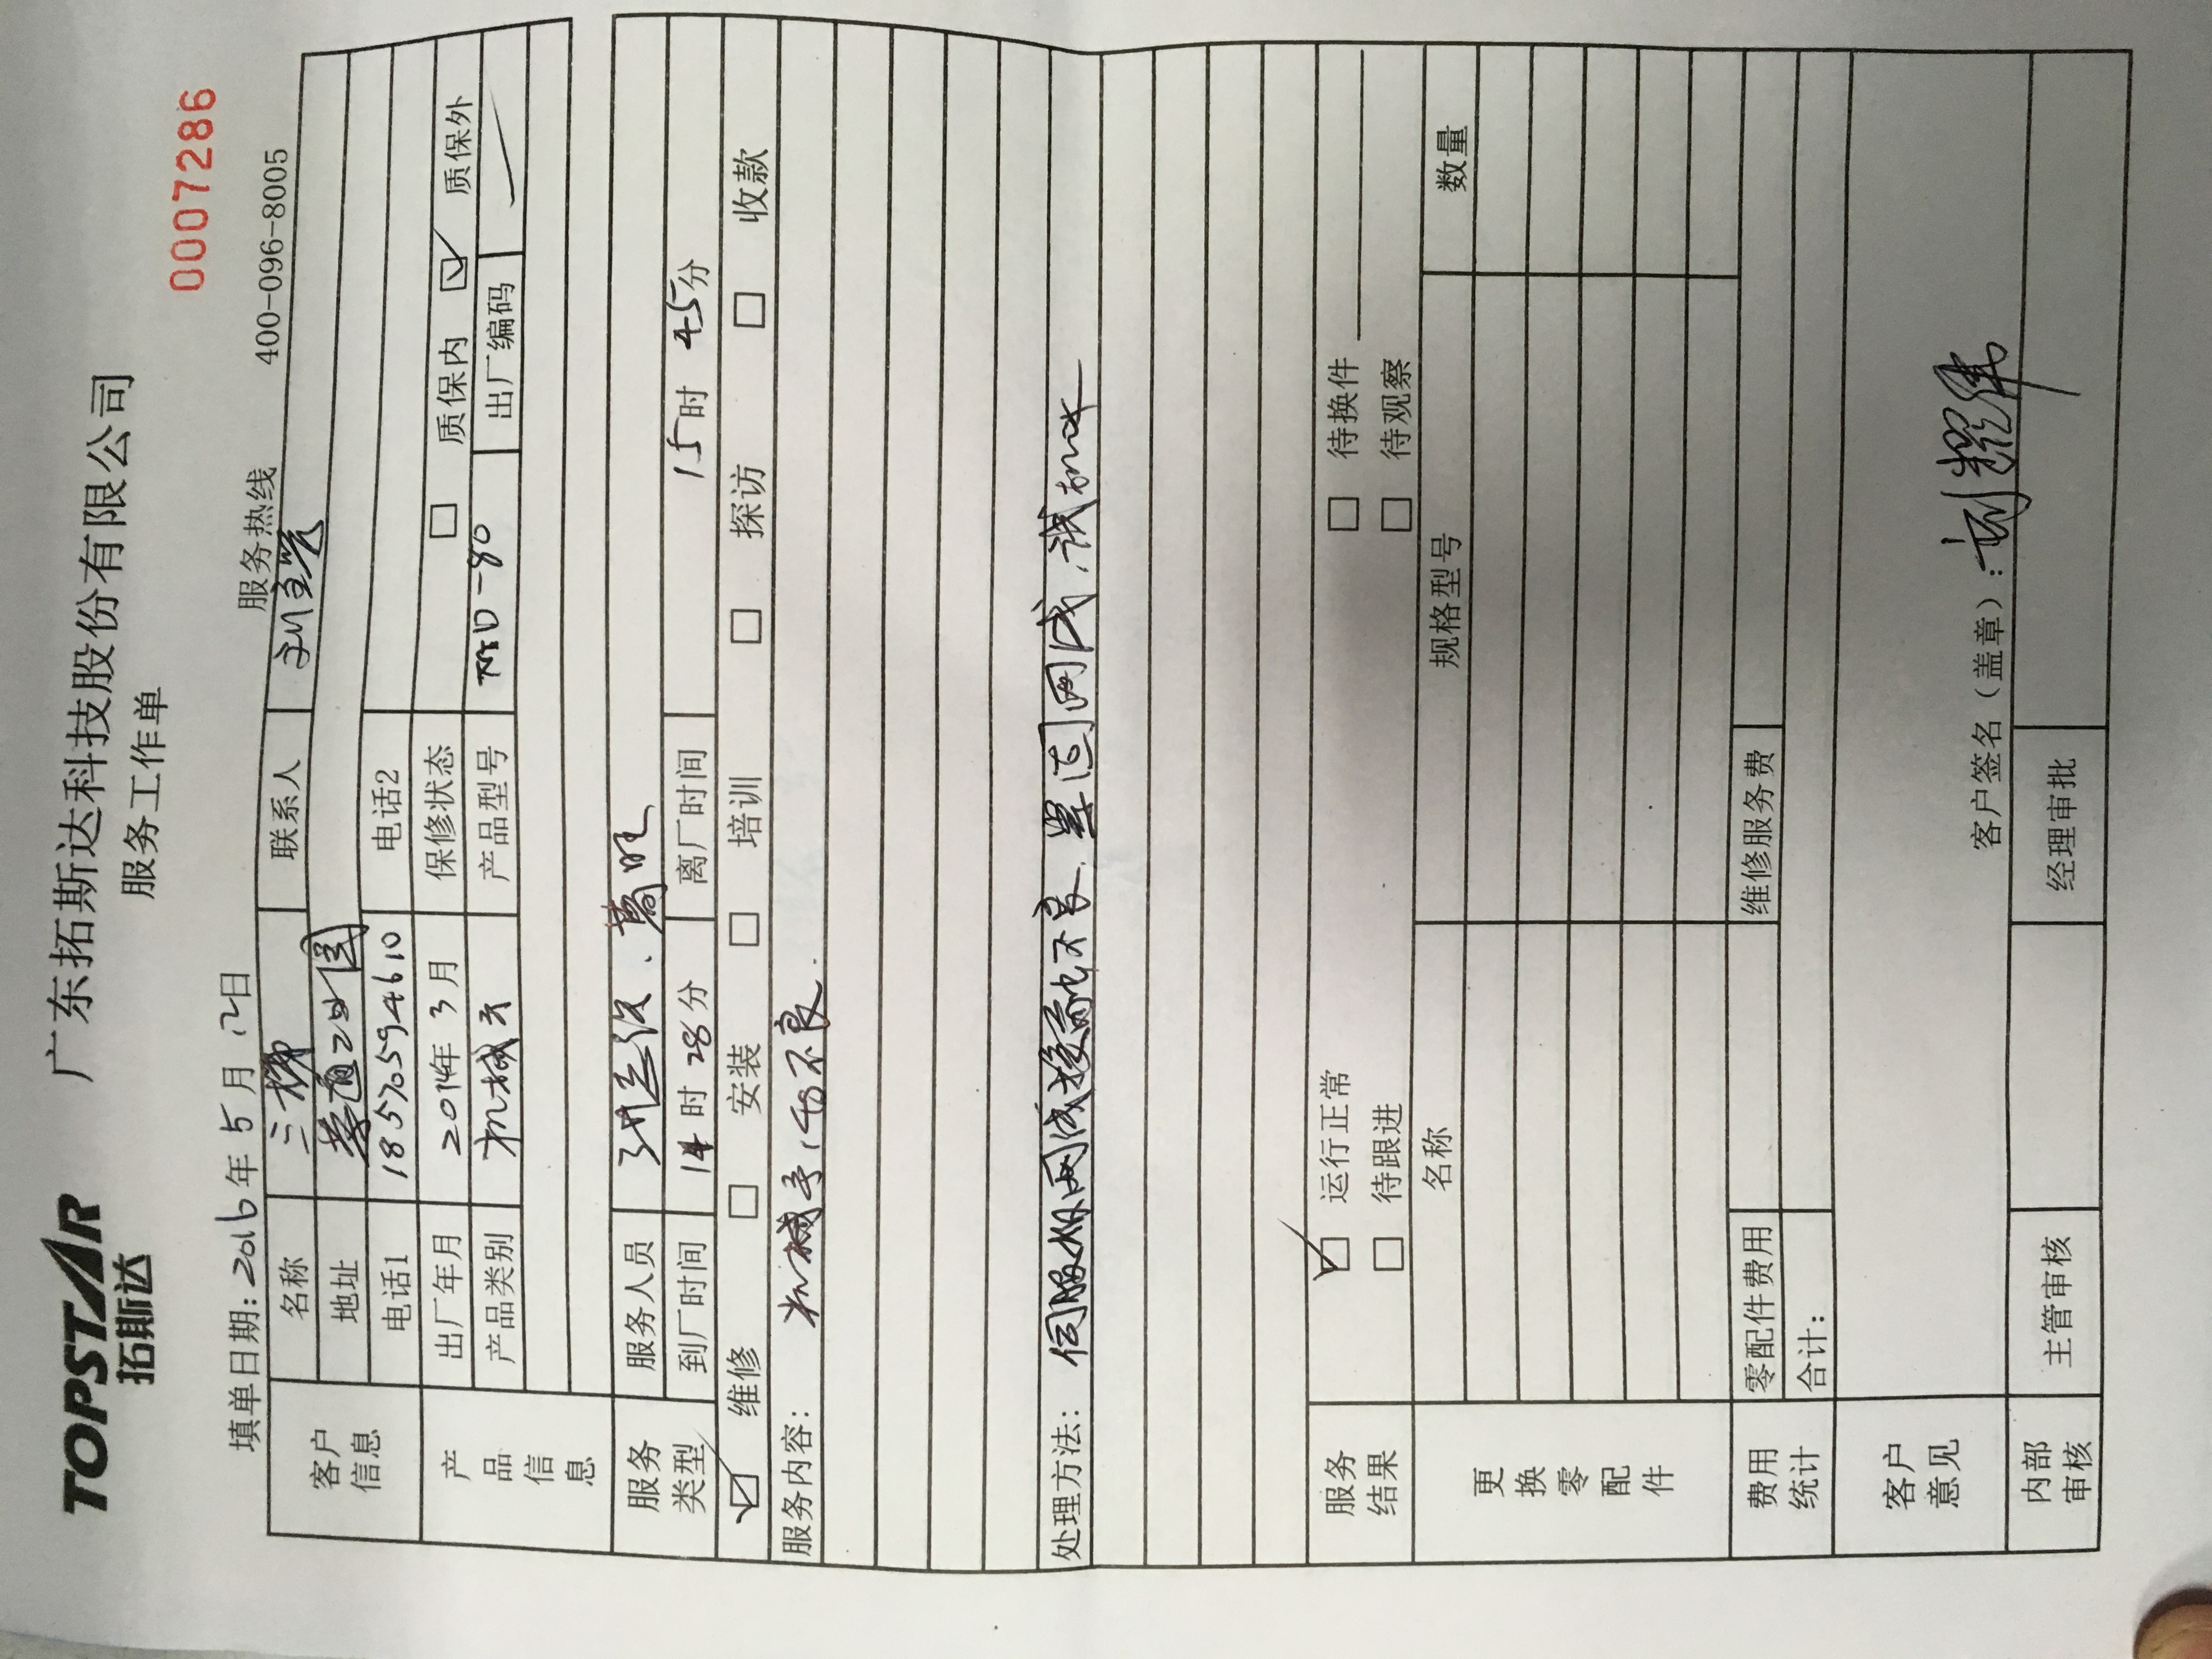 TOPSTAR
拓斯达
广东拓斯达科技股份有限公司
服务工作单
0007286
填单日期:2016年5月12日 服务热线 400-096-8005
客户信息
名称 联系人
地址
电话1 18570594610 电话2
产品信息
出厂年月 2014年3月 保修状态 □ 质保内 ☑ 质保外
产品类别 机械手 产品型号 -80 出厂编码
服务类型
服务人员
到厂时间 14时28分 离厂时间 15时45分
☑ 维修 □ 安装 □ 培训 □ 探访 □ 收款
服务内容: 机械手 不良.
处理方法: 伺服 接触不良、
服务结果
☑ 运行正常 □ 待换件
□ 待跟进 □ 待观察
更换零配件
名称 规格型号 数量
费用统计
零配件费用 维修服务费
合计:
客户意见
客户签名(盖章):
内部审核
主管审核 经理审批